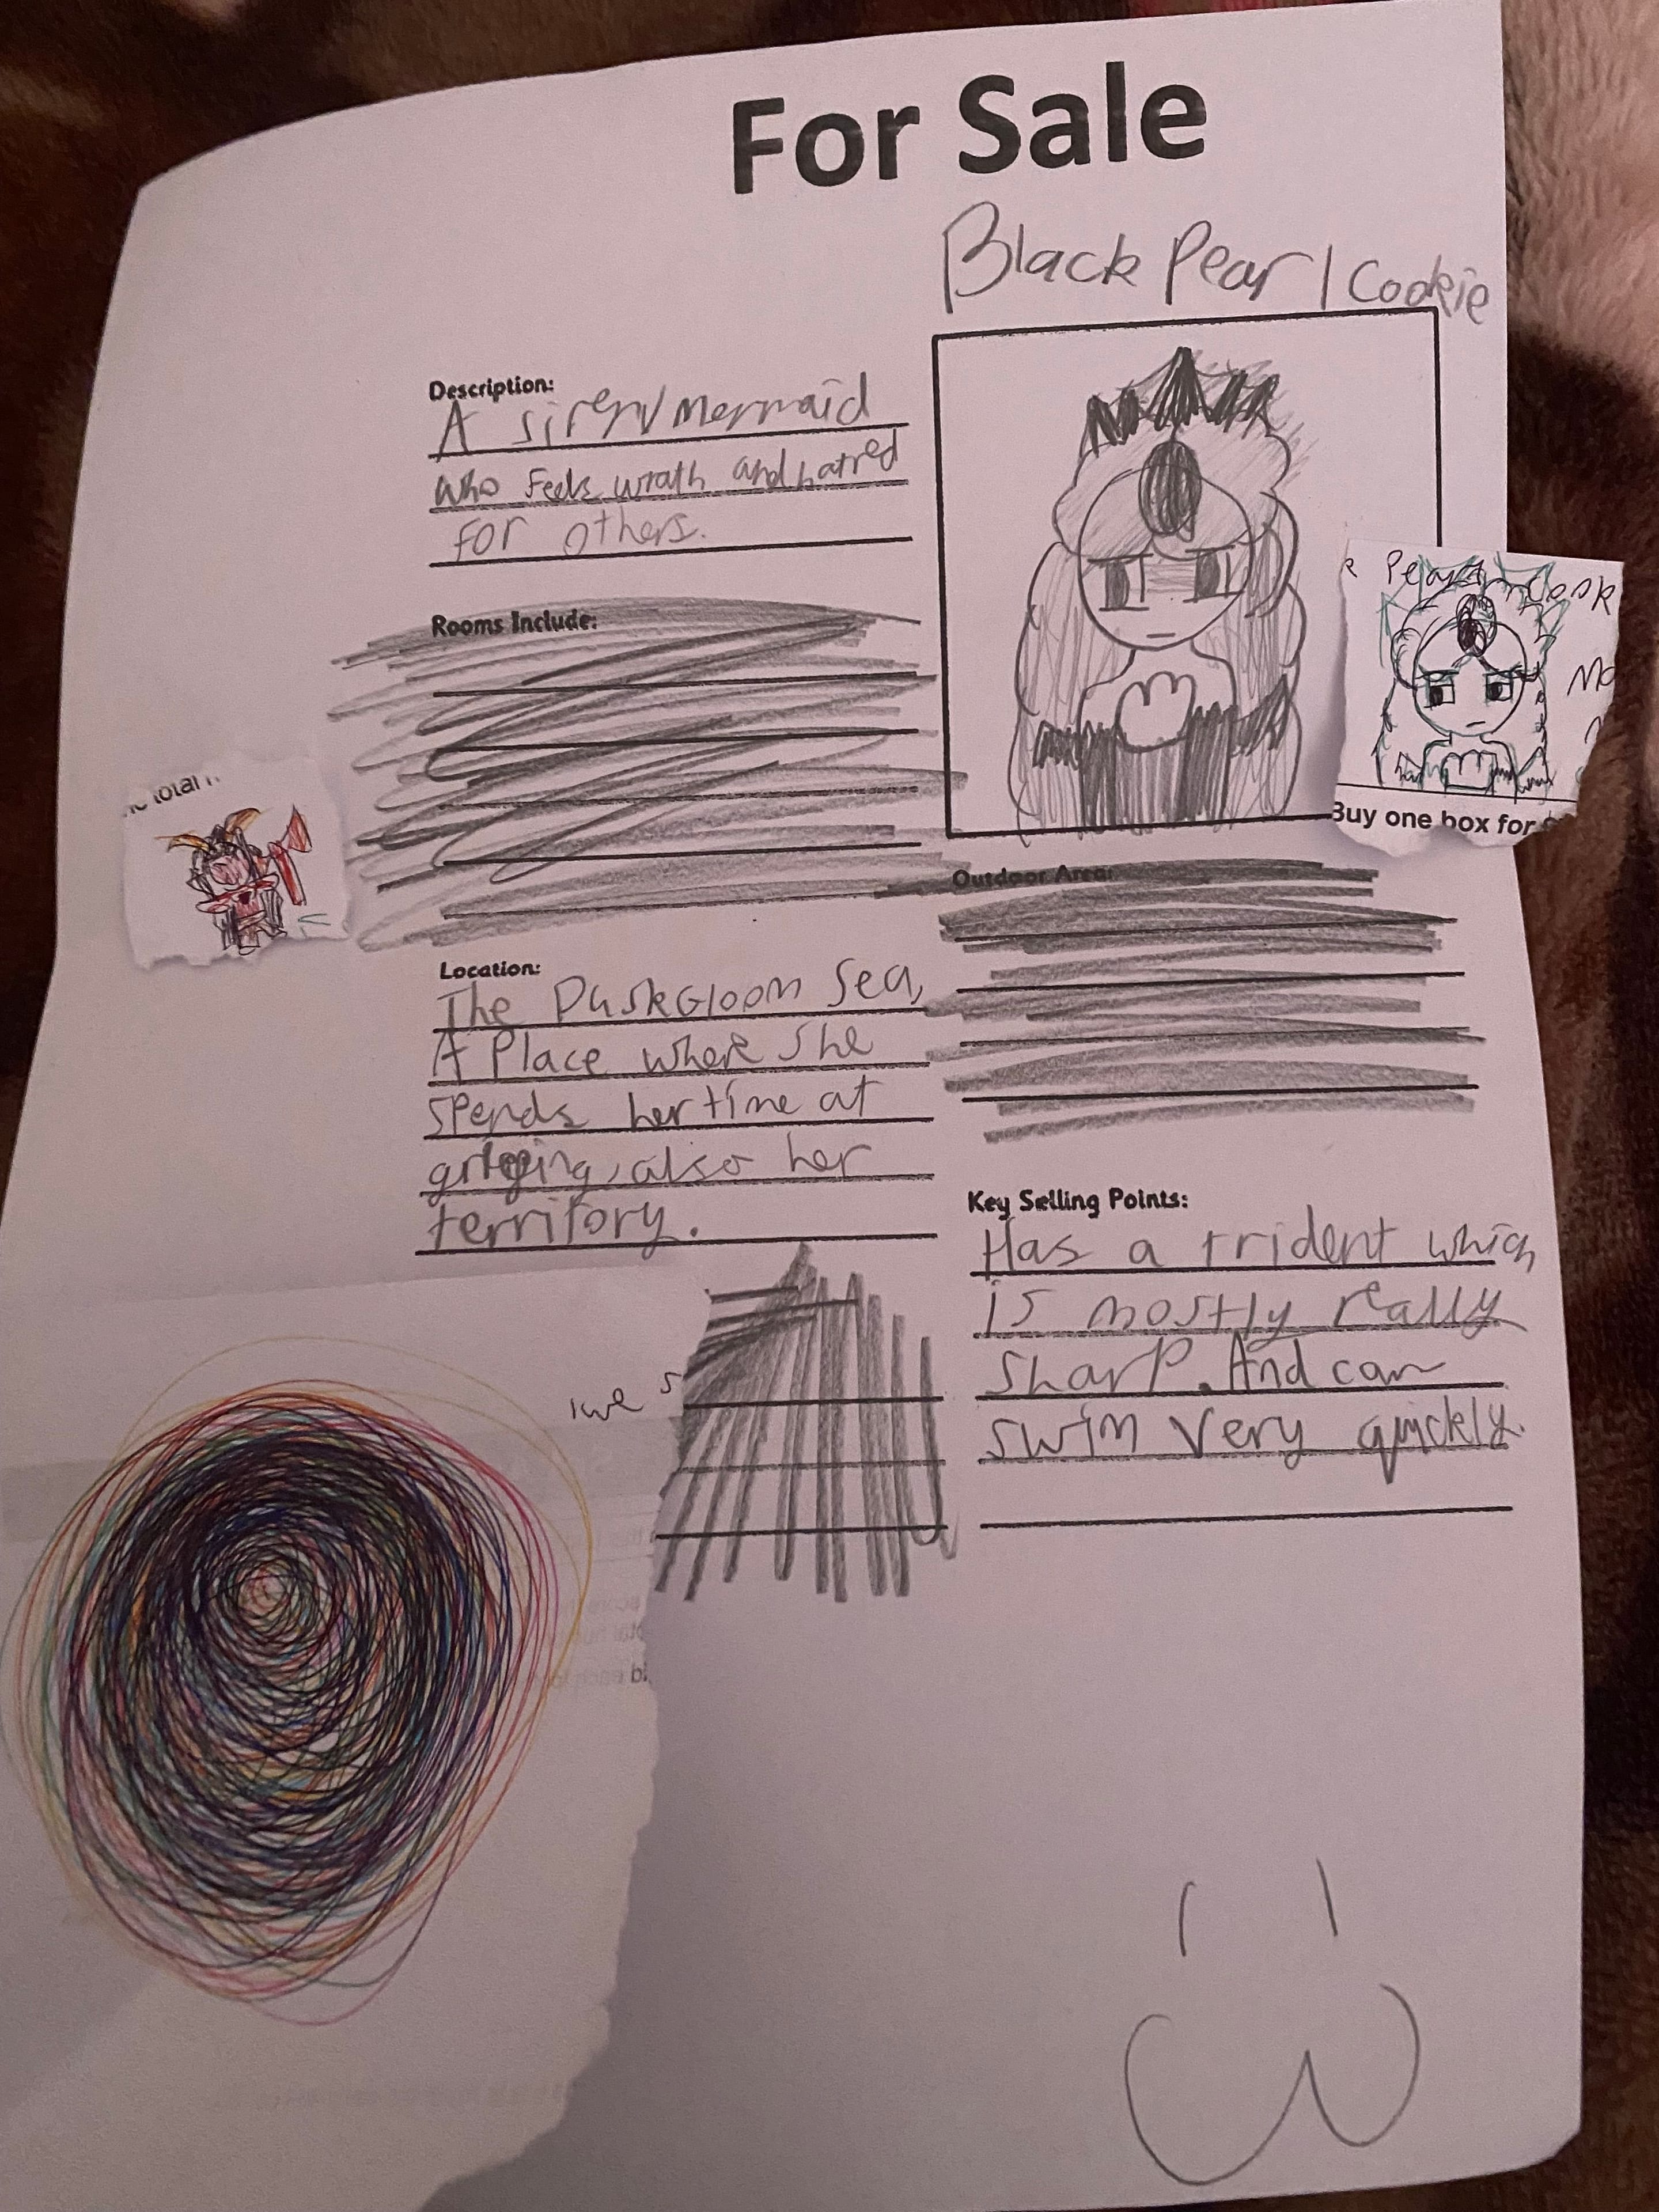 For Sale
Black Pearl Cookie
Description:
A siren/Mermaid
who feels wrath and hatred
for others.
Rooms Include:
Location:
The DuskGloom Sea,
A Place where she
spends her time at
also her
territory.
Pearl Cook
Buy one box for
Outdoor Area:
Key Selling Points:
Has a trident which
is mostly really
sharp. And can
swim very quickly.
total